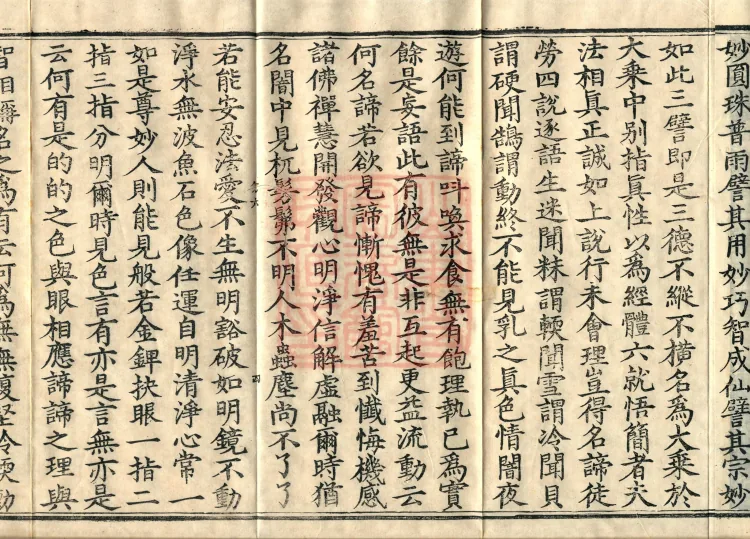 妙圓珠普雨譬其用妙巧智成仙譬其宗妙
如此三譬即是三德不縱不横名爲大乘於
大乘中别指眞性以爲經體六就悟簡者夫
法相眞正誠如上說行未會理豈得名諦徒
勞四說逐語生迷聞粖謂輭聞雪謂冷聞貝
謂硬聞鵠謂動終不能見乳之眞色情闇夜
遊何能到諦呌喚求食無有飽理執已爲實
餘是妄語此有彼無是非互起更益流動云
何名諦若欲見諦慚愧有羞苦到懺悔機感
諸佛禪慧開發觀心明淨信解虛融爾時猶
名闇中見杌髣髴不明人木蟲塵尚不了了
四
若能安忍法愛不生無明豁破如明鏡不動
淨水無波魚石色像任運自明清淨心常一
如是尊妙人則能見般若金錍抉眼一指二
指三指分明爾時見色言有亦是言無亦是
云何有是的的之色與眼相應諦諦之理與
智相稱名之爲有云何爲無無復堅冷耎動